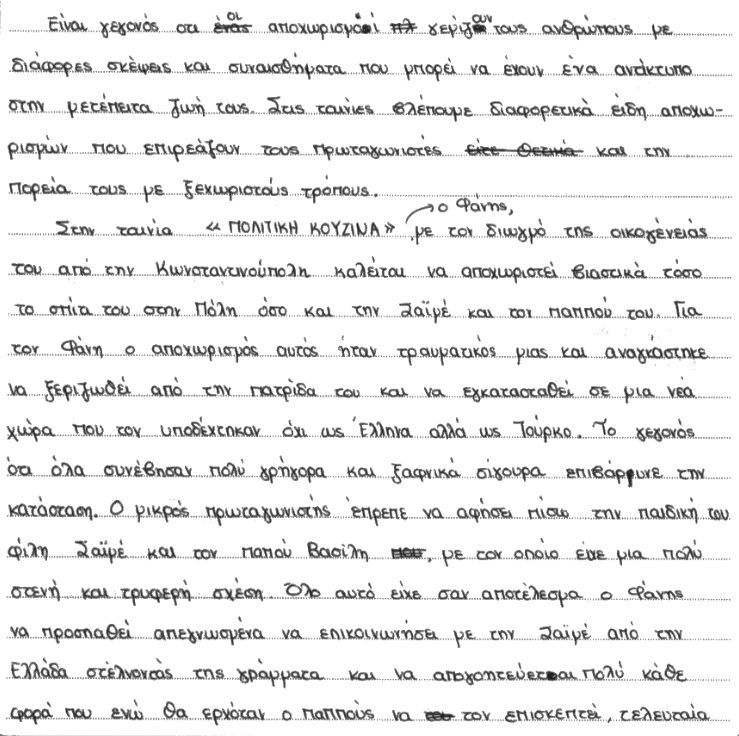 Είναι γεγονός οτι οι αποχωρισμοί γεμίζουν τους ανθρώπους με
διάφορες σκέψεις και συναισθήματα που μπορεί να έχουν ένα αντίκτυπο
στην μετέπειτα ζωή τους. Στις ταινίες βλέπουμε διαφορετικά είδη αποχω-
ρισμών που επιρεάζουν τους πρωταγωνιστές και την
πορεία τους με ξεχωριστούς τρόπους.
Στην ταινία «ΠΟΛΙΤΙΚΗ ΚΟΥΖΙΝΑ» ο Φάνης, με τον διωγμό της οικογένειάς
του από την Κωνσταντινούπολη καλείται να αποχωριστεί βιαστικά τόσο
το σπίτι του στην Πόλη όσο και την Σαϊμέ και τον παππού του. Για
τον Φάνη ο αποχωρισμός αυτός ήταν τραυματικός μιας και αναγκάστηκε
να ξεριζωθεί από την πατρίδα του και να εγκατασταθεί σε μια νέα
χώρα που τον υποδέχτηκαν όχι ως Έλληνα αλλά ως Τούρκο. Το γεγονός
ότι όλα συνέβησαν πολύ γρήγορα και ξαφνικά σίγουρα επιβάρυνε την
κατάσταση. Ο μικρός πρωταγωνιστής έπρεπε να αφήσει πίσω την παιδική του
φίλη Σαϊμέ και τον παπού Βασίλη, με τον οποίο είχε μια πολύ
στενή και τρυφερή σχέση. Όλο αυτό είχε σαν αποτέλεσμα ο Φάνης
να προσπαθεί απεγνωσμένα να επικοινωνήσει με την Σαϊμέ από την
Ελλάδα στέλνοντάς της γράμματα και να απογοητεύεται πολύ κάθε
φορά που ενώ θα ερχόταν ο παππούς να τον επισκεπτεί, τελευταία